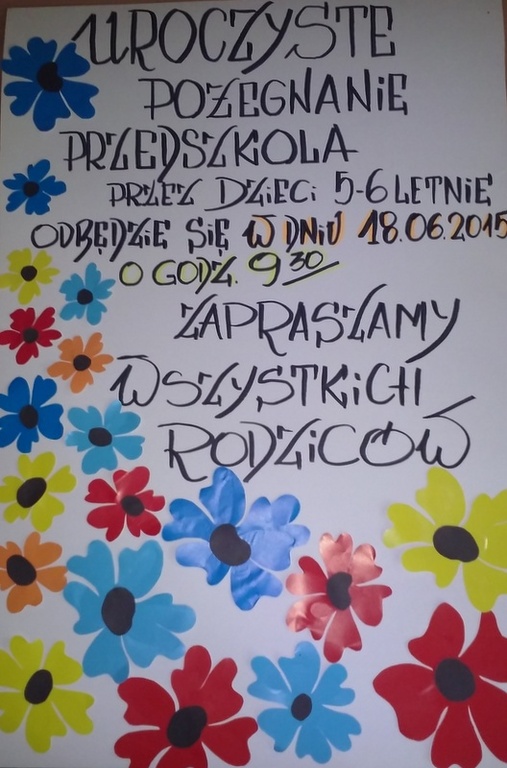 UROCZYSTE
POŻEGNANIE
PRZEDSZKOLA
PRZEZ DZIECI 5-6 LETNIE
ODBĘDZIE SIĘ W DNIU 18.06.2015
O GODZ. 9 30
ZAPRASZAMY
WSZYSTKICH
RODZICÓW